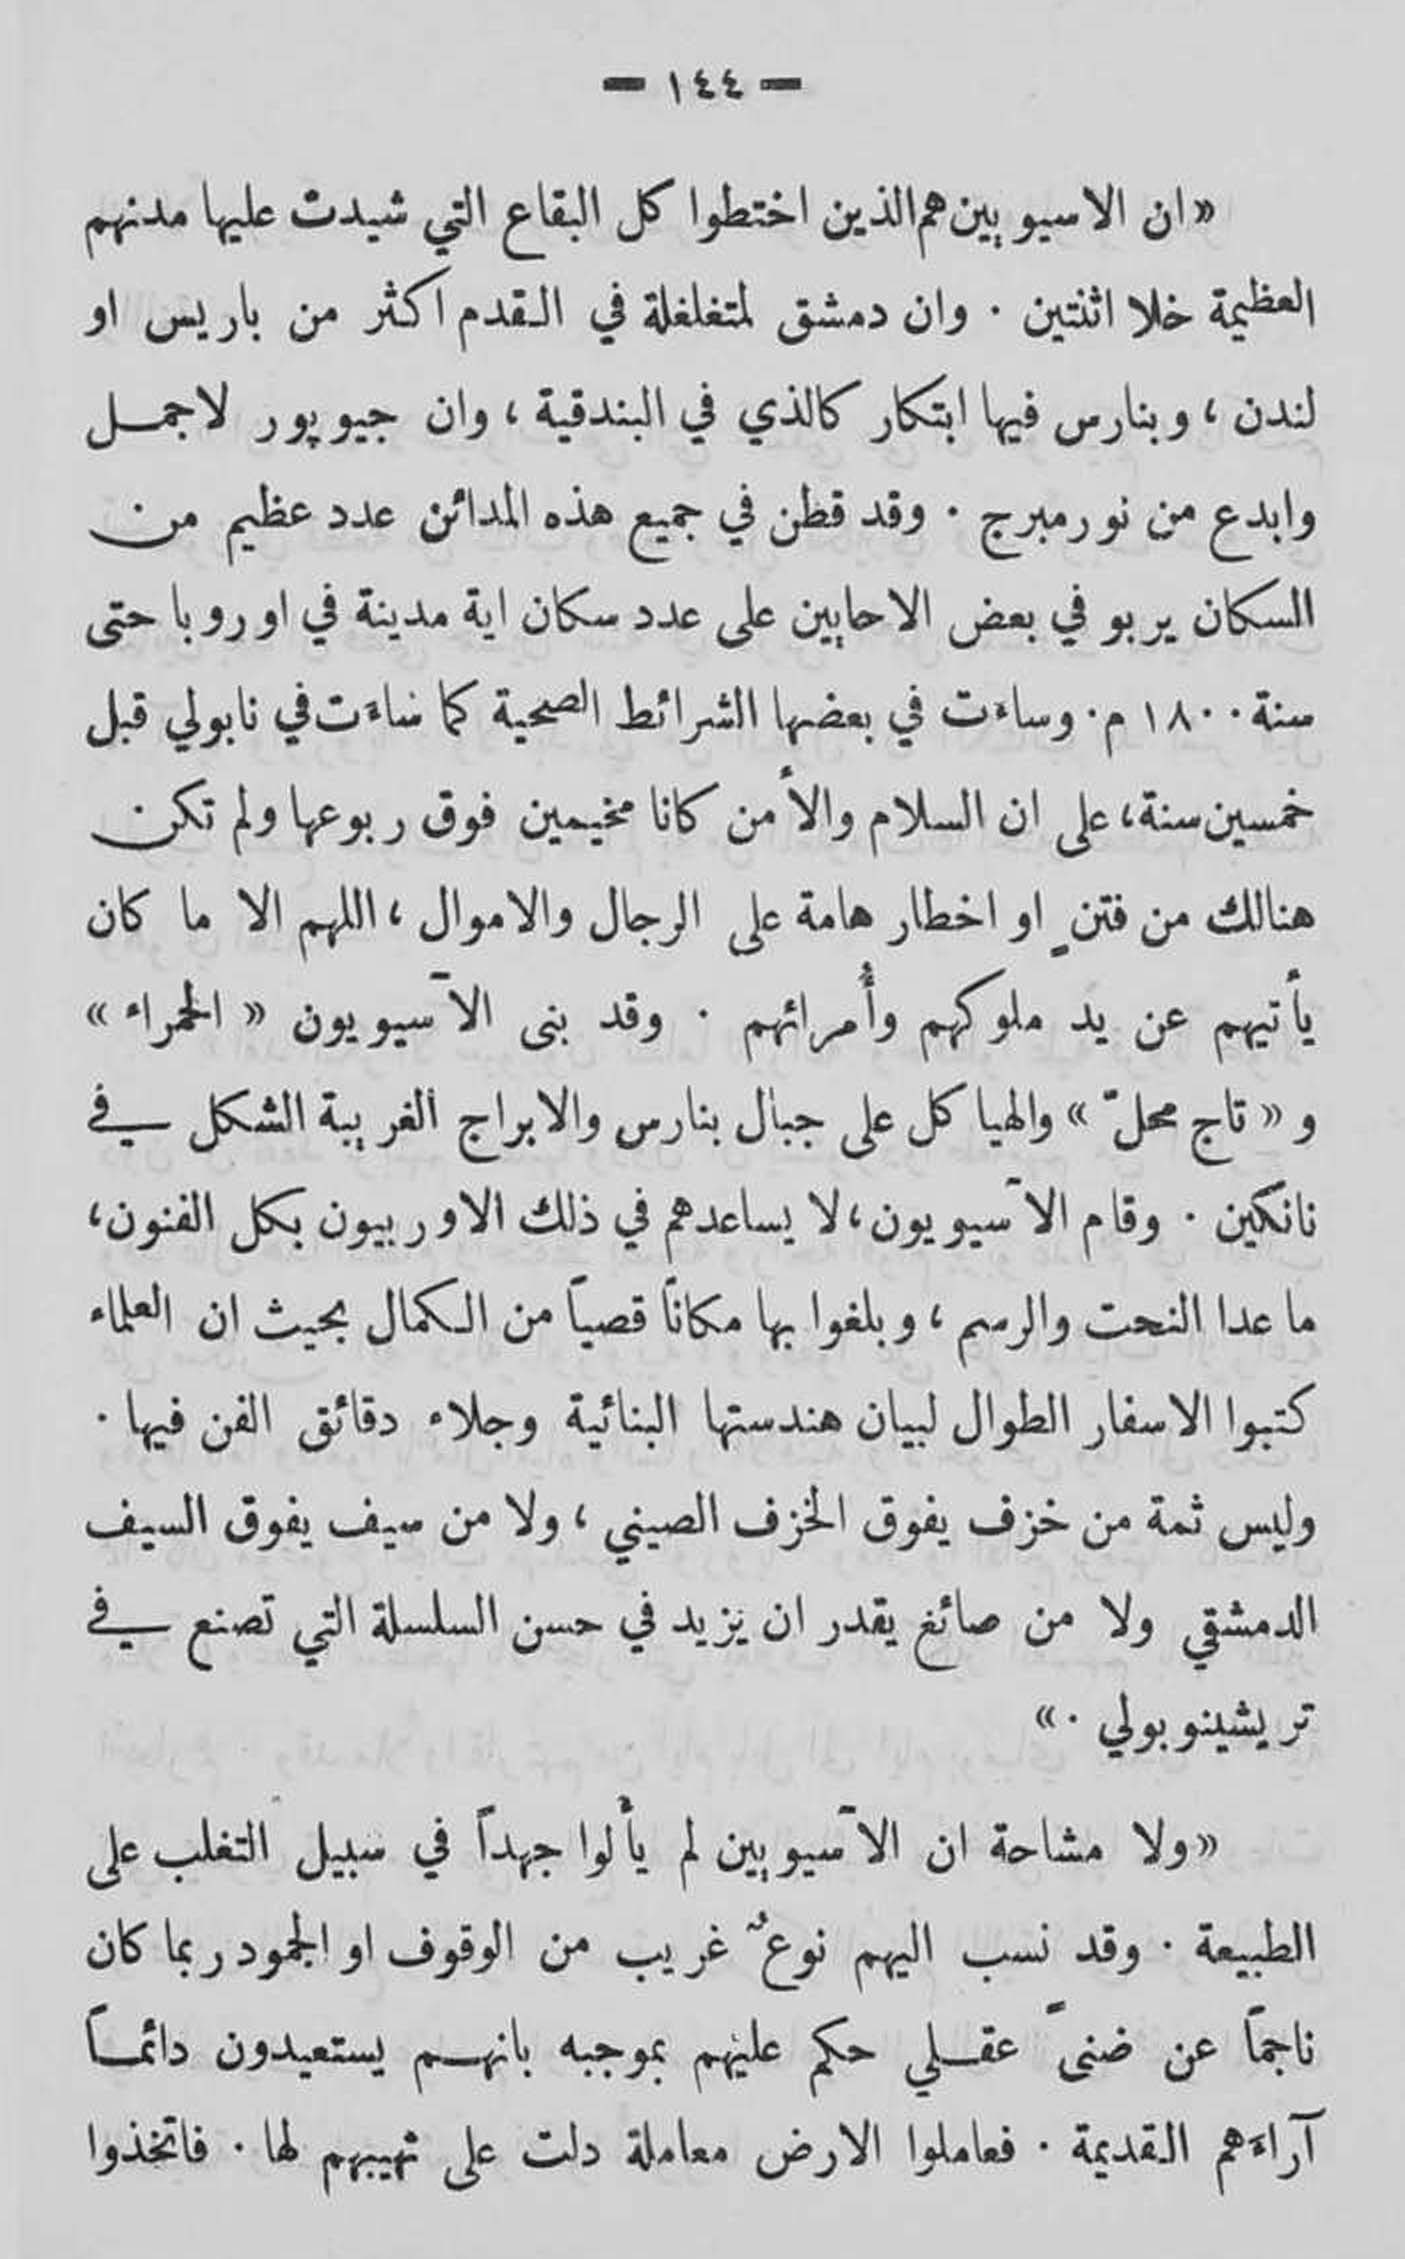 — ١٤٤ —
«ان الاسيويين هم الذين اختطوا كل البقاع التي شيدت عليها مدنهم
العظيمة خلا اثنتين . وان دمشق لمتغلغلة في القدم اكثر من باريس او
لندن ، وبنارس فيها ابتكار كالذي في البندقية ، وان جيوپور لاجمل
وابدع من نورمبرج . وقد قطن في جميع هذه المدائن عدد عظيم من
السكان يربو في بعض الاحايين على عدد سكان اية مدينة في اوروبا حتى
سنة ١٨٠٠ م . وساءت في بعضها الشرائط الصحية كما ساءَت في نابولي قبل
خمسين سنة ، على ان السلام والأمن كانا مخيمين فوق ربوعها ولم تكن
هنالك من فتنٍ او اخطار هامة على الرجال والاموال ، اللهم الا ما كان
يأتيهم عن يد ملوكهم وأُمرائهم . وقد بنى الآسيويون « الحمراء »
و « تاج محلّ » والهياكل على جبال بنارس والابراج الغريبة الشكل في
نانكين . وقام الآسيويون ، لا يساعدهم في ذلك الاوربيون بكل الفنون ،
ما عدا النحت والرسم ، وبلغوا بها مكاناً قصياً من الكمال بحيث ان العلماء
كتبوا الاسفار الطوال لبيان هندستها البنائية وجلاء دقائق الفن فيها .
وليس ثمة من خزف يفوق الخزف الصيني ، ولا من سيف يفوق السيف
الدمشقي ولا من صائغ يقدر ان يزيد في حسن السلسلة التي تصنع في
تريشينوبولي . »
«ولا مشاحة ان الآسيويين لم يأْلوا جهداً في سبيل التغلب على
الطبيعة . وقد نسب اليهم نوعٌ غريب من الوقوف او الجمود ربما كان
ناجماً عن ضنىً عقلي حكم عليهم بموجبه بانهم يستعيدون دائماً
آراءَهم القديمة . فعاملوا الارض معاملة دلت على تهيبهم لها . فاتخذوا